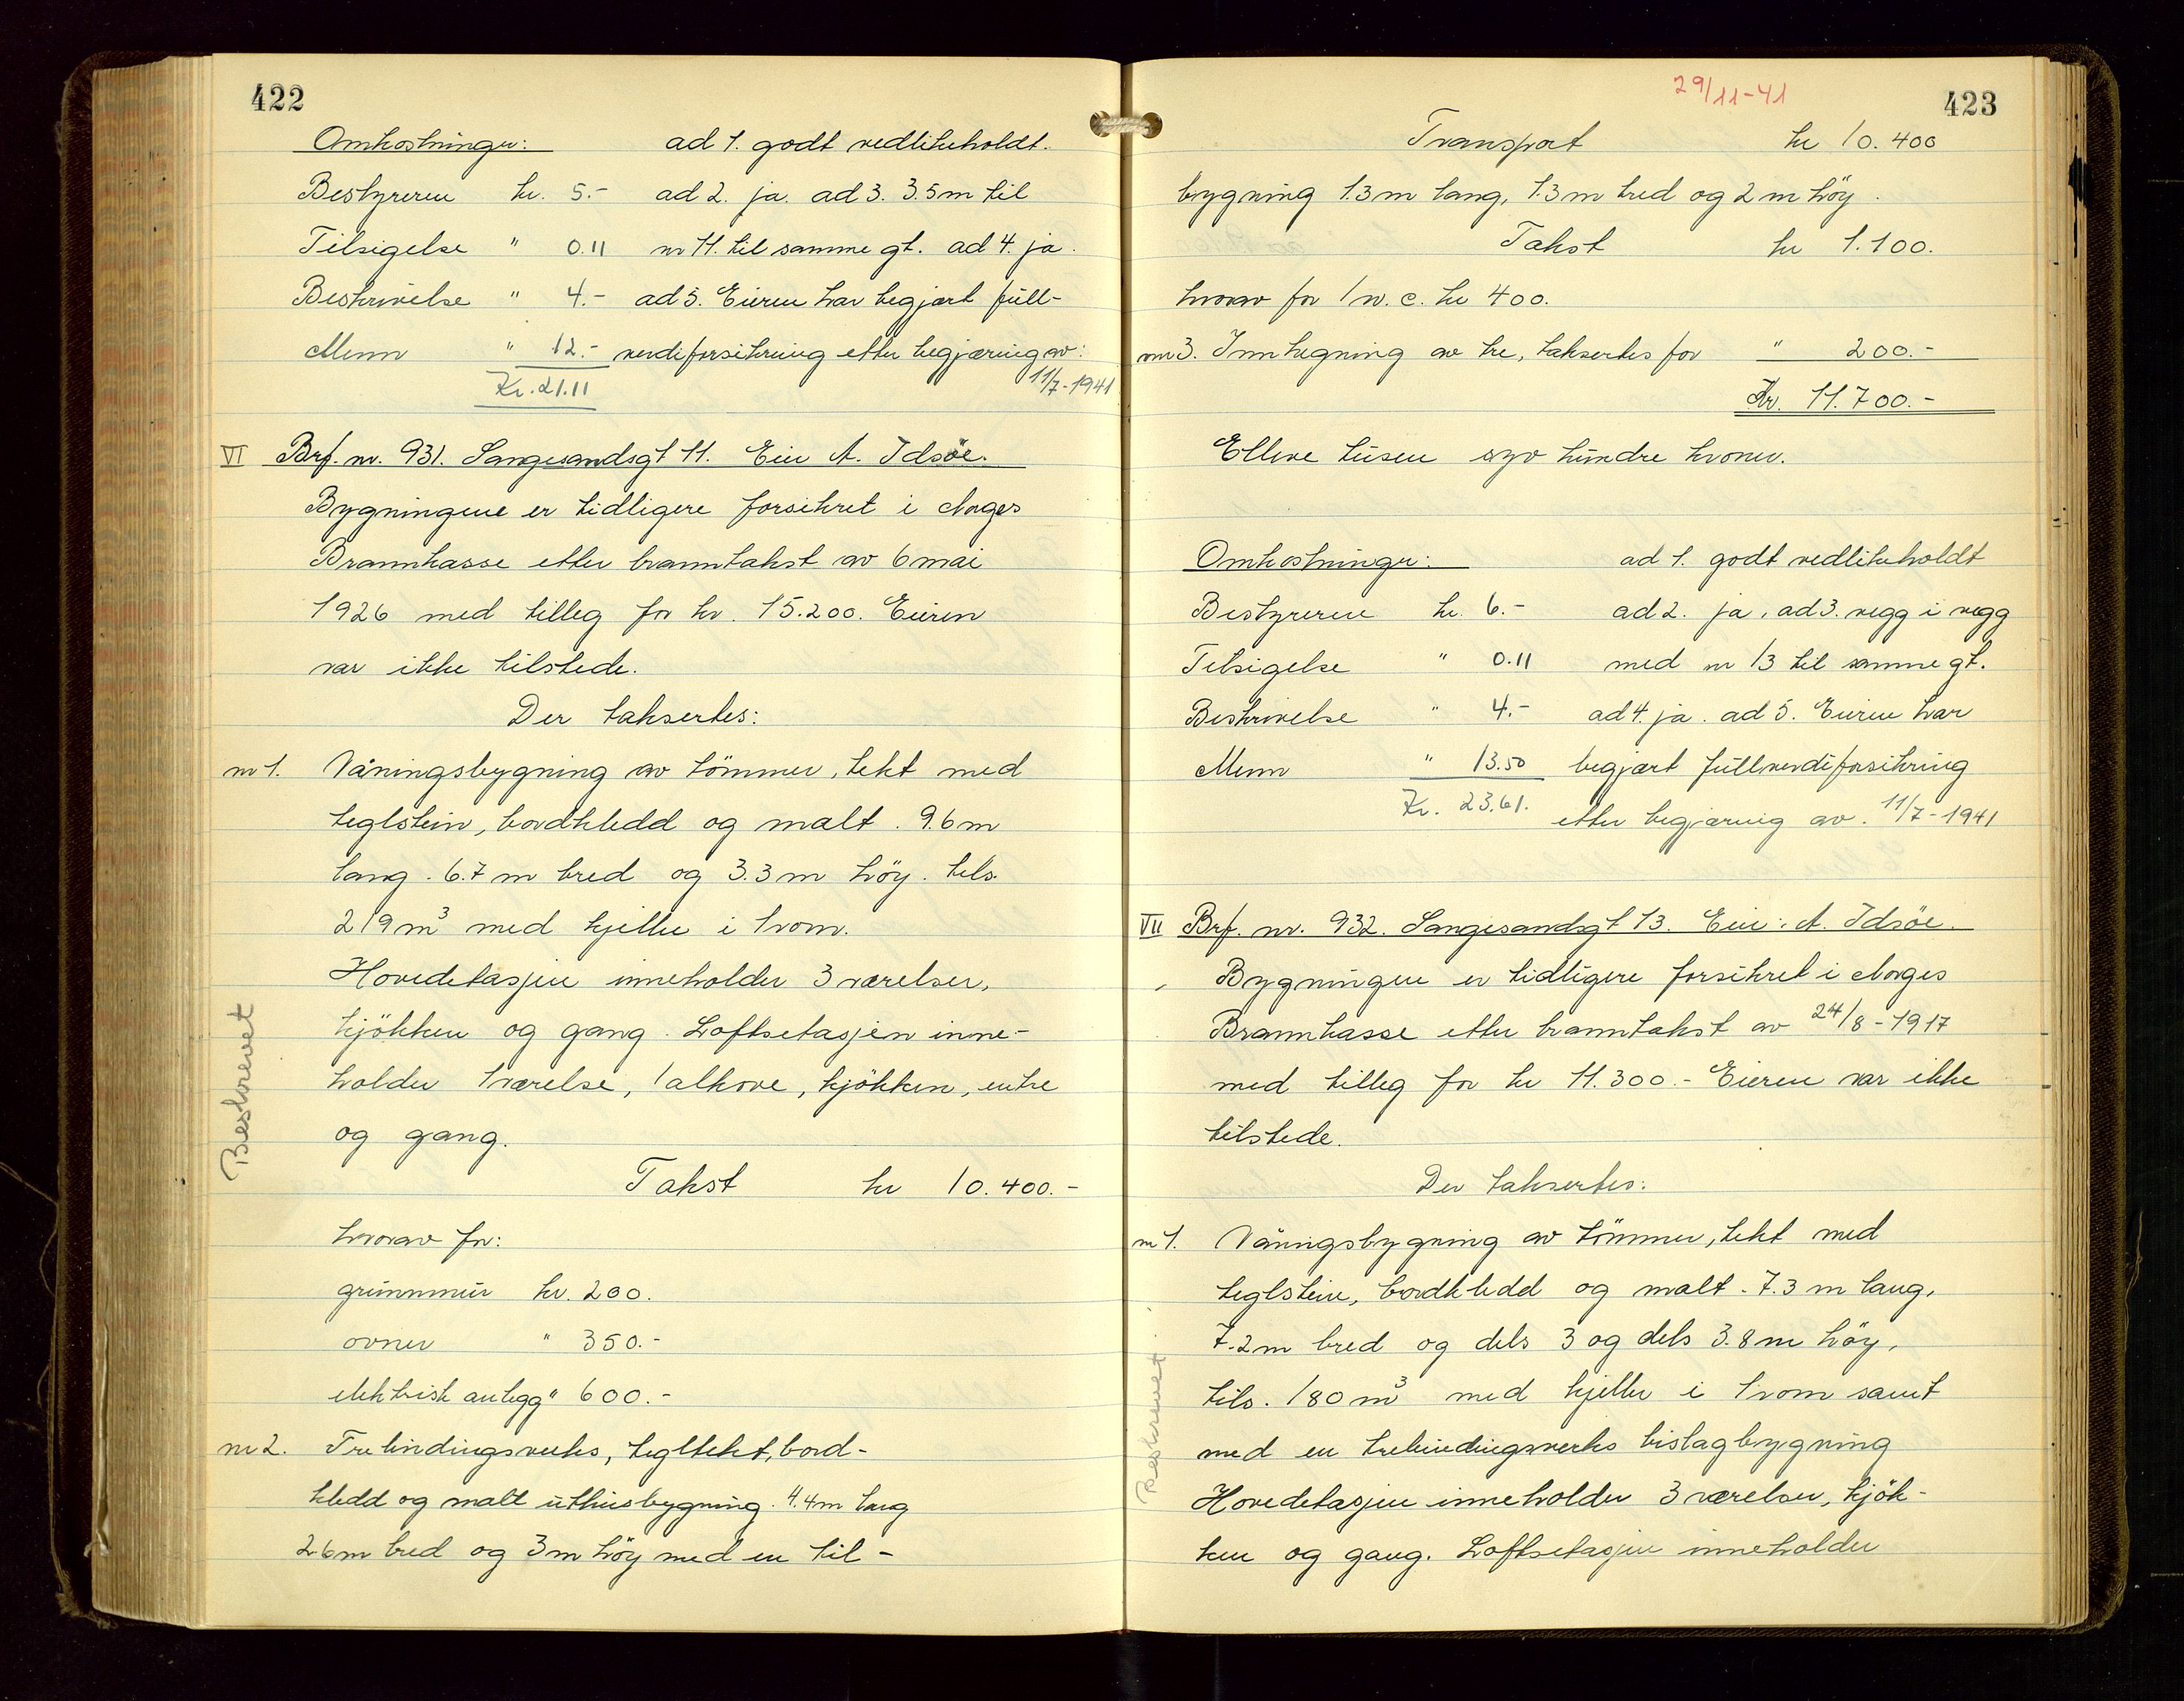 422
Omkostninger: ad 1. godt vedlikeholdt.
Bestyreren kr. 5.- ad 2. ja. ad 3. 3.5m til
Tilsigelse " 0.11 nr 11. til samme gt. ad 4. ja.
Beskrivelse " 4.- ad 5. Eieren har begjært full-
Menn " 12.- verdiforsikring etter begjæring av:
Kr. 21.11 11/7-1941
VI Brf. nr. 931. Sangesandsgt 11. Eier A. Idsöe.
Bygningene er tidligere forsikret i Norges
Brannkasse etter branntakst av 6 mai
1926 med tillegg for kr. 15.200. Eieren
var ikke tilstede.
Der taksertes:
nr 1. Våningsbygning av tömmer, tekt med
teglstein, bordkledd og malt. 9.6m
lang. 6.7 m bred og 3.3m höy. tils.
219 m³ med kjeller i 1 rom.
Hovedetasjen inneholder 3 værelser,
kjökken og gang. Loftsetasjen inne-
holder 1 værelse, 1 alkove, kjökken, entre
og gang.
Takst kr 10.400.-
hvorav for:
grunnmur kr. 200.
ovner " 350.-
elektrisk anlegg " 600.-
nr 2. Trebindingsverks, tegltekt, bord-
kledd og malt uthusbygning. 4.4m lang
2.6m bred og 3m höy med en til-
Beskrevet
29/11-41
423
Transport kr 10.400
bygning 1.3m lang, 1.3m bred og 2 m höy.
Takst kr 1.100.
hvorav for 1 w.c. kr 400.
nr 3. Innhegning av tre, taksertes for " 200.-
Kr. 11.700.-
Elleve tusen syv hundre kroner.
Omkostninger: ad 1. godt vedlikeholdt
Bestyreren kr. 6.- ad 2. ja, ad 3. vegg i vegg
Tilsigelse " 0.11 med nr 13 til samme gt.
Beskrivelse " 4.- ad 4. ja. ad 5. Eieren har
Menn " 13.50 begjært fullverdiforsikring
Kr. 23.61. etter begjæring av. 11/7-1941
VII Brf. nr. 932. Sangesandsgt 13. Eier: A. Idsöe.
Bygningen er tidligere forsikret i Norges
Brannkasse etter branntakst av 24/8-1917
med tillegg for kr 11.300.- Eieren var ikke
tilstede.
Der taksertes:
nr 1. Våningsbygning av tömmer, tekt med
teglstein, bordkledd og malt. 7.3 m lang,
7.2m bred og dels 3 og dels 3.8m höy,
tils. 180 m³ med kjeller i 1 rom samt
med en trebindingsverks bislagbygning
Hovedetasjen inneholder 3 værelser, kjök-
ken og gang. Loftsetasjen inneholder
Beskrevet.